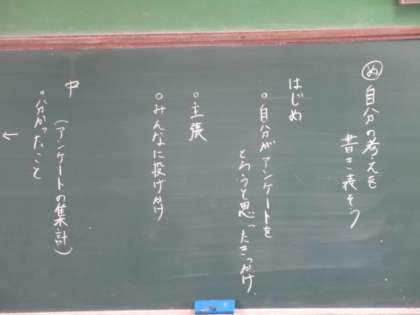 め 自分の考えを
書き表そう
はじめ
○自分がアンケートを
とろうと思ったきっかけ
○主張
○みんなに投げかけ
中
(アンケートの集計)
○分かったこと
←